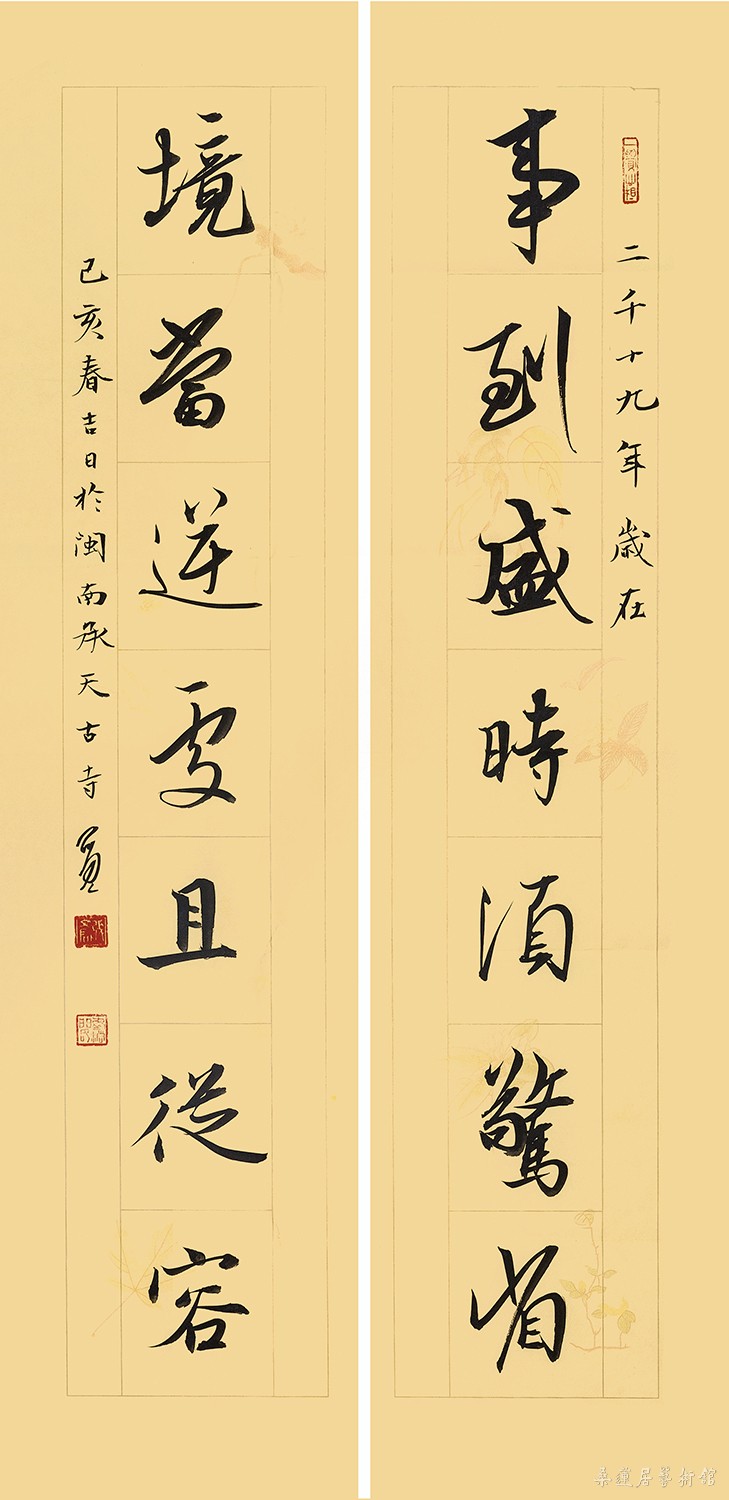 二千十九年 歲在
事到盛時須驚省
境當逆處且從容
己亥春吉日於閩南承天古寺
桑蓮居藝術館